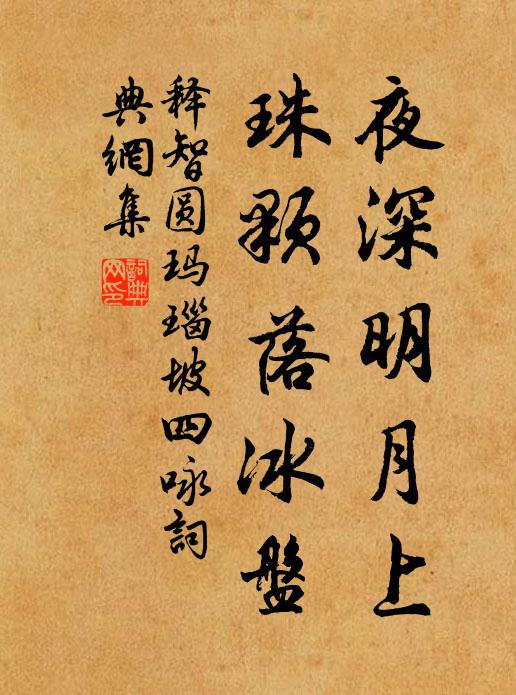 夜深明月上
珠颗落冰盤
释智圆玛瑙坡四咏詞
典網集
詞典網印